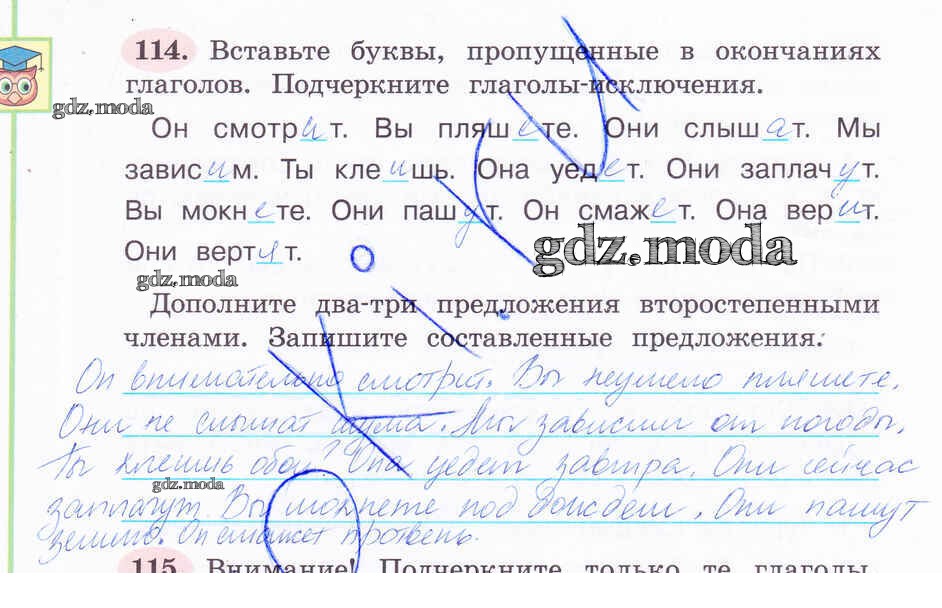 114. Вставьте буквы, пропущенные в окончаниях
глаголов. Подчеркните глаголы-исключения.
gdz.moda
Он смотрит. Вы пляшете. Они слышат. Мы
зависим. Ты клеишь. Она уедет. Они заплачут.
Вы мокнете. Они пашут. Он смажет. Она верит.
gdz.moda
Они вертят.
gdz.moda
Дополните два-три предложения второстепенными
членами. Запишите составленные предложения.
Он внимательно смотрит. Вы неумело пляшете.
Они не слышат шума. Мы зависим от погоды.
Ты клеишь обои? Она уедет завтра. Они сейчас
gdz.moda
заплачут. Вы мокнете под дождем. Они пашут
землю. Он смажет противень.
115. Внимание! Подчеркните только те глаголы,
OK.I.KU